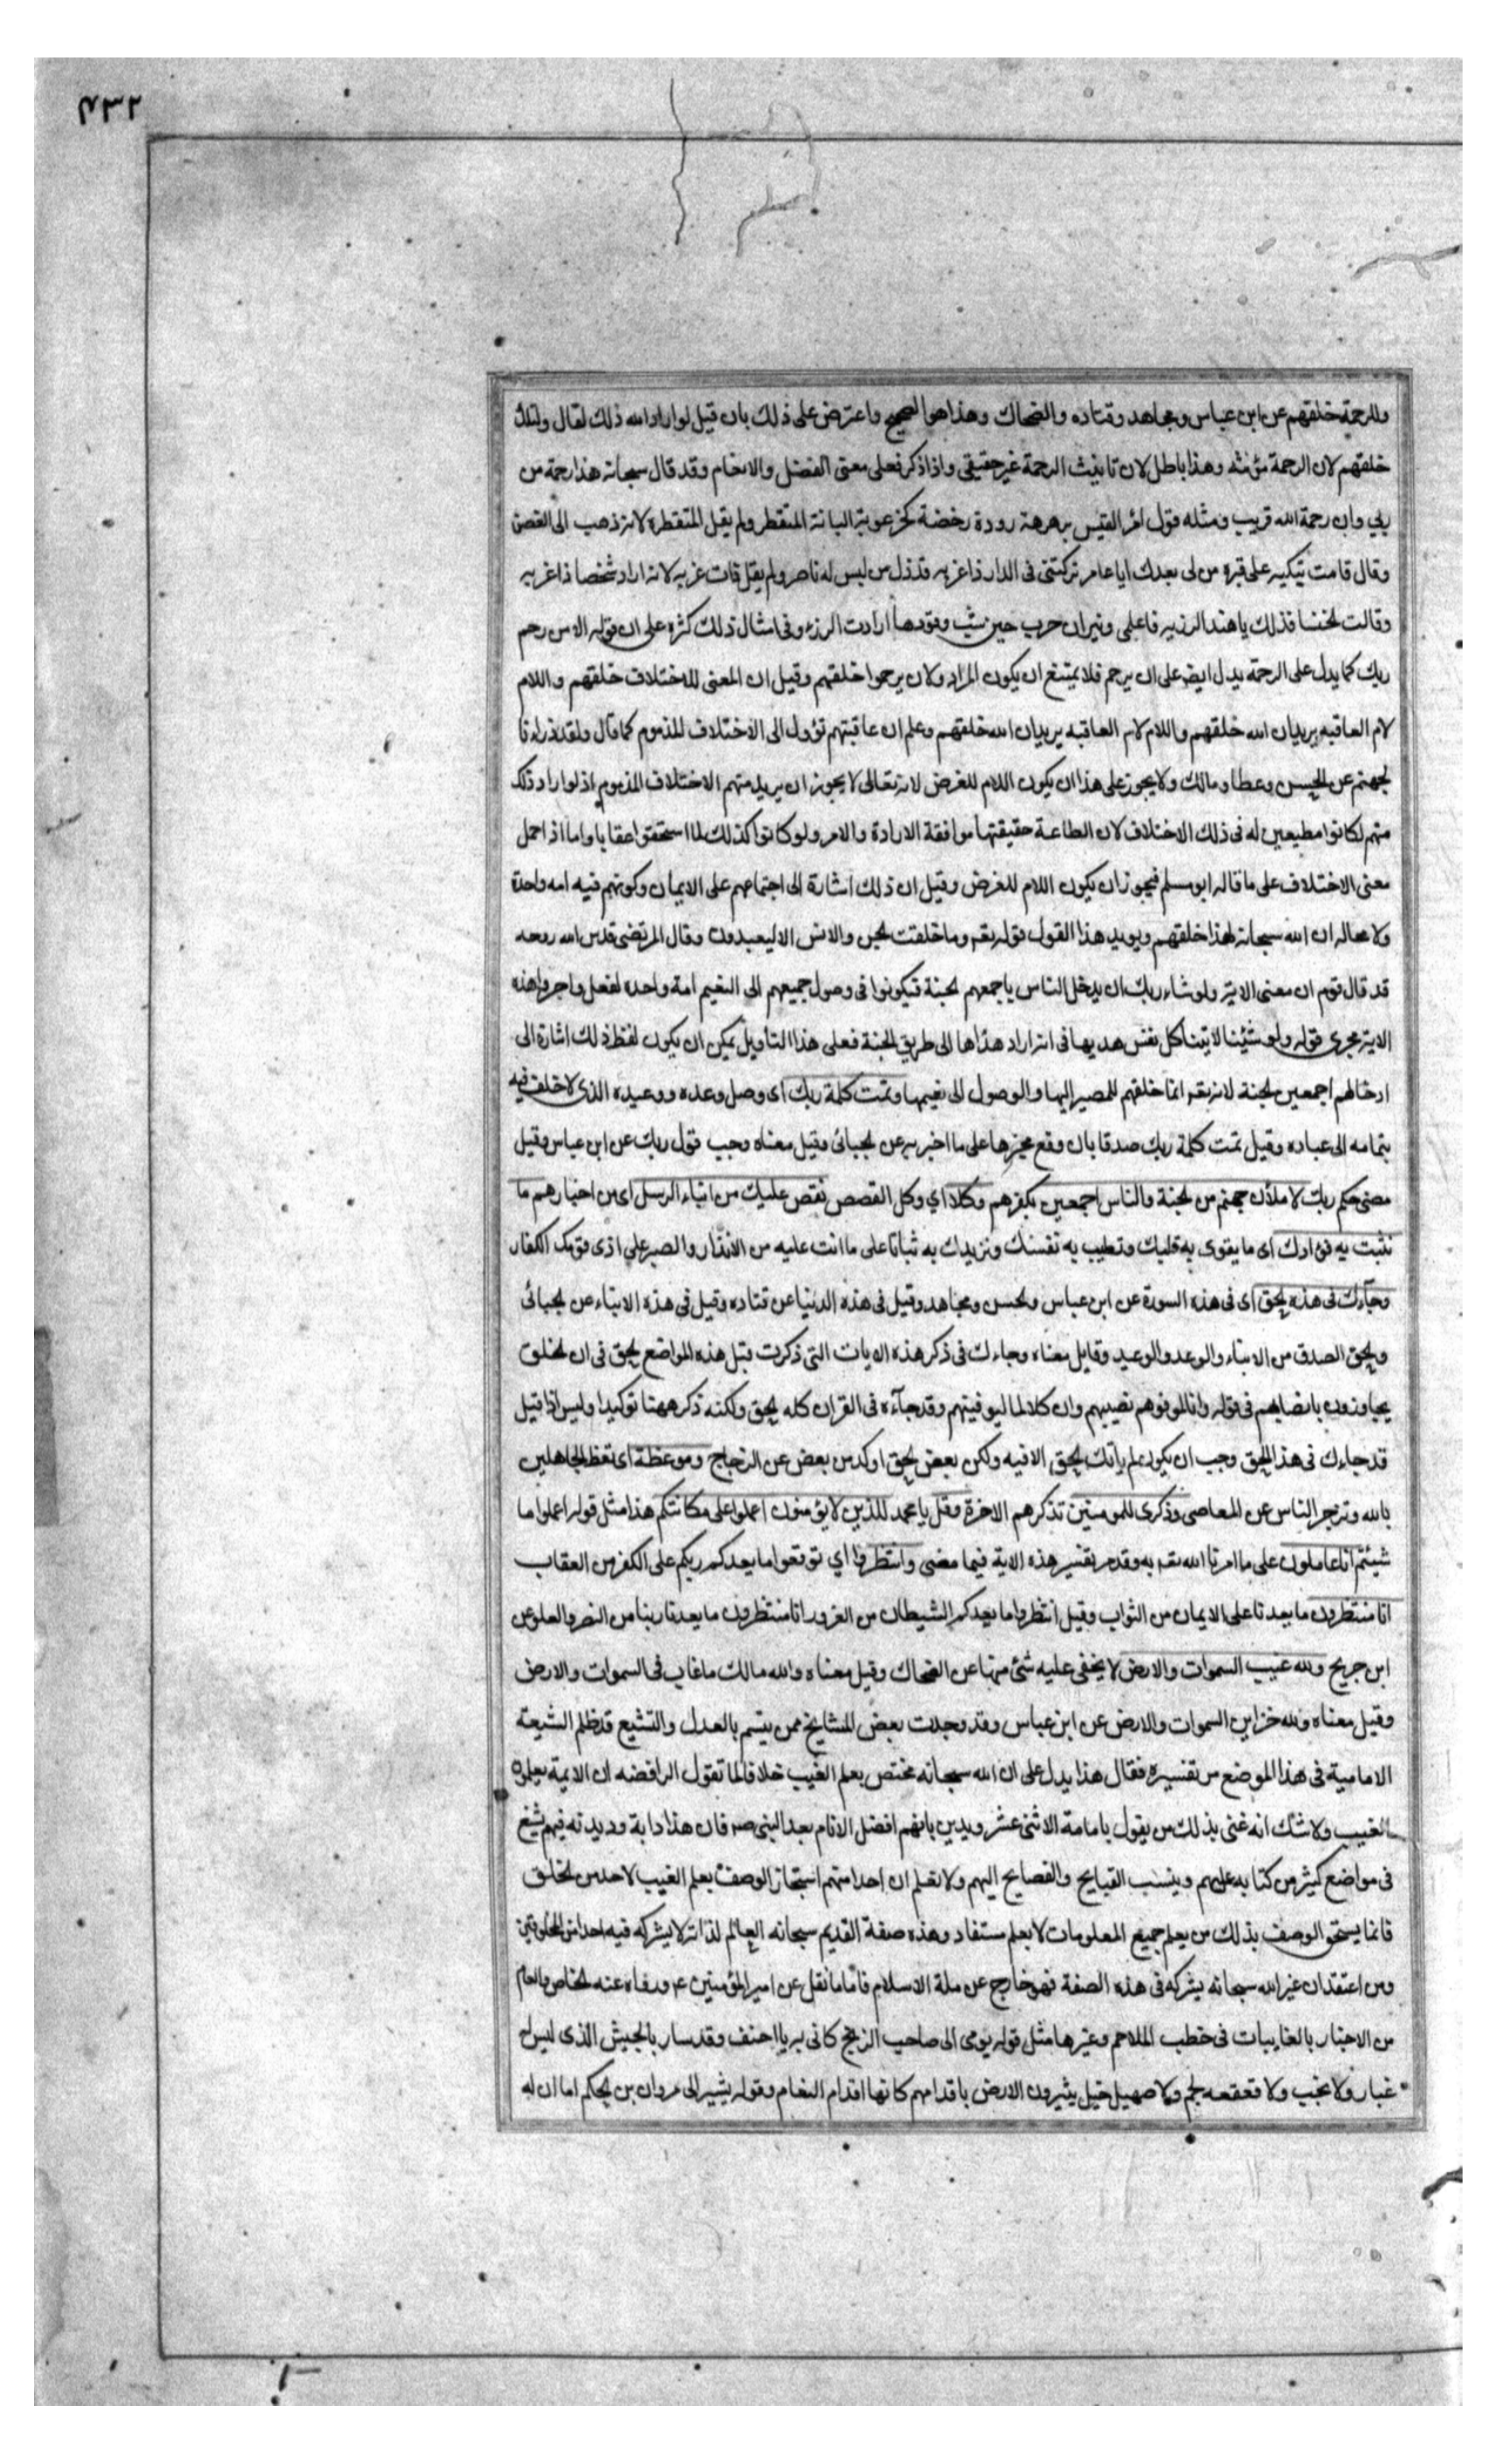 ٤٣٢
وللرحمة خلقهم عن ابن عباس ومجاهد وقتاده والضحاك وهذا هو الصحيح واعترض على ذلك بان قيل لو اراد الله ذلك لقال ولتلك
خلقهم لان الرحمة مؤنثه وهذا باطل لان تانيث الرحمة غير حقيقي واذا ذكر فعلى معنى الفضل والانعام وقد قال سبحانه هذا رحمة من
ربي وان رحمة الله قريب ومثله قول امرؤ القيس برهرهة رودة رخضة كخرعوبة البانة المنفطر ولم يقل المنفطرة لانه ذهب الى الغصن
وقال قامت تبكيه على قبره من لى بعدك ايا عامر تركتنى فى الدار ذا غربه قد ذل من ليس له ناصر ولم يقل ذات غربه لانه اراد شخصا ذا غربه
وقالت لخنسا فذلك يا هند الرزيه فاعلمى ونيران حرب حين شب وقودها ارادت الرزء وفى امثال ذلك كثره على ان قوله الا من رحم
ربك كما يدل على الرحمة يدل ايض على ان يرحم فلا يمتنع ان يكون المراد ولان يرحموا خلقهم وقيل ان المعنى للاختلاف خلقهم واللام
لام العاقبه يريد ان الله خلقهم واللام لام العاقبه يريد ان الله خلقهم وعلم ان عاقبتهم تؤول الى الاختلاف المذموم كما قال ولقد ذرانا
لجهنم عن الحسن وعطا ومالك ولا يجوز على هذا ان يكون اللام للغرض لانه تعالى لا يجوز ان يريد منهم الاختلاف المذموم اذ لو اراد ذلك
منهم لكانوا مطيعين له فى ذلك الاختلاف لان الطاعة حقيقتها موافقة الارادة والامر ولو كانوا كذلك لما استحقوا عقابا واما اذا حمل
معنى الاختلاف على ما قاله ابو مسلم فيجوز ان يكون اللام للغرض وقيل ان ذلك اشارة الى اجتماعهم على الايمان وكونهم فيه امه واحدة
ولا محاله ان الله سبحانه لهذا خلقهم ويويد هذا القول قوله تعه وما خلقت لجن والانس الا ليعبدون وقال المرتضى قدس الله روحه
قد قال قوم ان معنى الاية ولو شاء ربك ان يدخل الناس باجمعهم لجنة فيكونوا فى وصول جميعهم الى النعيم امة واحده لفعل واجروا هذه
الاية مجرى قوله ولو شئنا لاتينا كل نفس هديها فى انه اراد هداها الى طريق الجنة فعلى هذا التاويل يمكن ان يكون لفظ ذلك اشارة الى
ادخالهم اجمعين لجنة لانه تعه انما خلقهم للمصير اليها والوصول الى نعيمها وتمت كلمة ربك اى وصل وعده ووعيده الذى لا خلف فيه
بتمامه الى عباده وقيل تمت كلمة ربك صدقا بان وقع مخبرها على ما اخبر به عن لجبائى وقيل معناه وجب قول ربك عن ابن عباس وقيل
مضى حكم ربك لاملان جهنم من لجنة والناس اجمعين بكفرهم وكلا اي وكل القصص نقص عليك من انباء الرسل اى من اخبارهم ما
نثبت به فؤادك اى ما يقوى به قلبك وتطيب به نفسك ونزيدك به ثباتا على ما انت عليه من الانذار والصبر على اذى قومك الكفار
وجاءك فى هذه لحق اى فى هذه السورة عن ابن عباس ولحسن ومجاهد وقيل فى هذه الدنيا عن قتاده وقيل فى هذه الانباء عن لجبائى
ولحق الصدق من الانباء والوعد والوعيد وقايل معناه وجاءك فى ذكر هذه الايات التى ذكرت قبل هذه المواضع لحق فى ان لخلق
يجاوزون بانصبائهم فى قوله وانا لموفوهم نصيبهم وان كلا لما ليوفينهم وقد جآءه فى القران كله لحق ولكنه ذكر ههنا توكيدا وليس اذا قيل
قد جاءك فى هذا الحق وجب ان يكون لم ياتك لحق الا فيه ولكن بعض لحق اوكد من بعض عن الزجاج وموعظة اى تعظ الجاهلين
بالله وتزجر الناس عن المعاصى وذكرى للمومنين تذكرهم الاخرة وقل يا محمد للذين لا يؤمنون اعملوا على مكانتكم هذا مثل قوله اعملوا ما
شئتم انا عاملون على ما امرنا الله تعه به وقد مر تفسير هذه الاية فيما مضى وانتظروا اي توقعوا ما يعدكم ربكم على الكفر من العقاب
انا منتظرون ما يعدنا على الايمان من الثواب وقيل انتظروا ما يعدكم الشيطان من الغرور انا منتظرون ما يعدنا ربنا من النصر والعلو عن
ابن جريج ولله غيب السموات والارض لا يخفى عليه شئ منها عن الضحاك وقيل معناه والله مالك ما غاب فى السموات والارض
وقيل معناه ولله خزاين السموات والارض عن ابن عباس وقد وجدت بعض المشايخ ممن يتسم بالعدل والتشيع قد ظلم الشيعة
الامامية فى هذا الموضع من تفسيره فقال هذا يدل على ان الله سبحانه مختص بعلم الغيب خلافا لما تقول الرافضه ان الايمة يعلمون
الغيب ولا شك انه عنى بذلك من يقول بامامة الاثنى عشر ويدين بانهم افضل الانام بعد النبى صه فان هذا دابه وديدنه فيهم يشنع
فى مواضع كثير من كتابه عليهم وينسب القبايح والفضايح اليهم ولا نعلم ان احدا منهم استجاز الوصف بعلم الغيب لاحد من لخلق
فانما يستحق الوصف بذلك من يعلم جميع المعلومات لا بعلم مستفاد وهذه صفة القديم سبحانه العالم لذاته لا يشركه فيه احد من المخلوقين
ومن اعتقد ان غير الله سبحانه يشركه فى هذه الصفة فهو خارج عن ملة الاسلام فاما ما نقل عن امير المؤمنين عم ورواه عنه لخاص والعام
من الاخبار بالغايبات فى خطب الملاحم وغيرها مثل قوله يومى الى صاحب الزنج كانى به يا احنف وقد سار بالجيش الذى ليس له
غبار ولا لجب ولا قعقعه لجم ولا صهيل خيل يثيرون الارض باقدامهم كانها اقدام النعام وقوله يشير الى مروان بن لحكم اما ان له